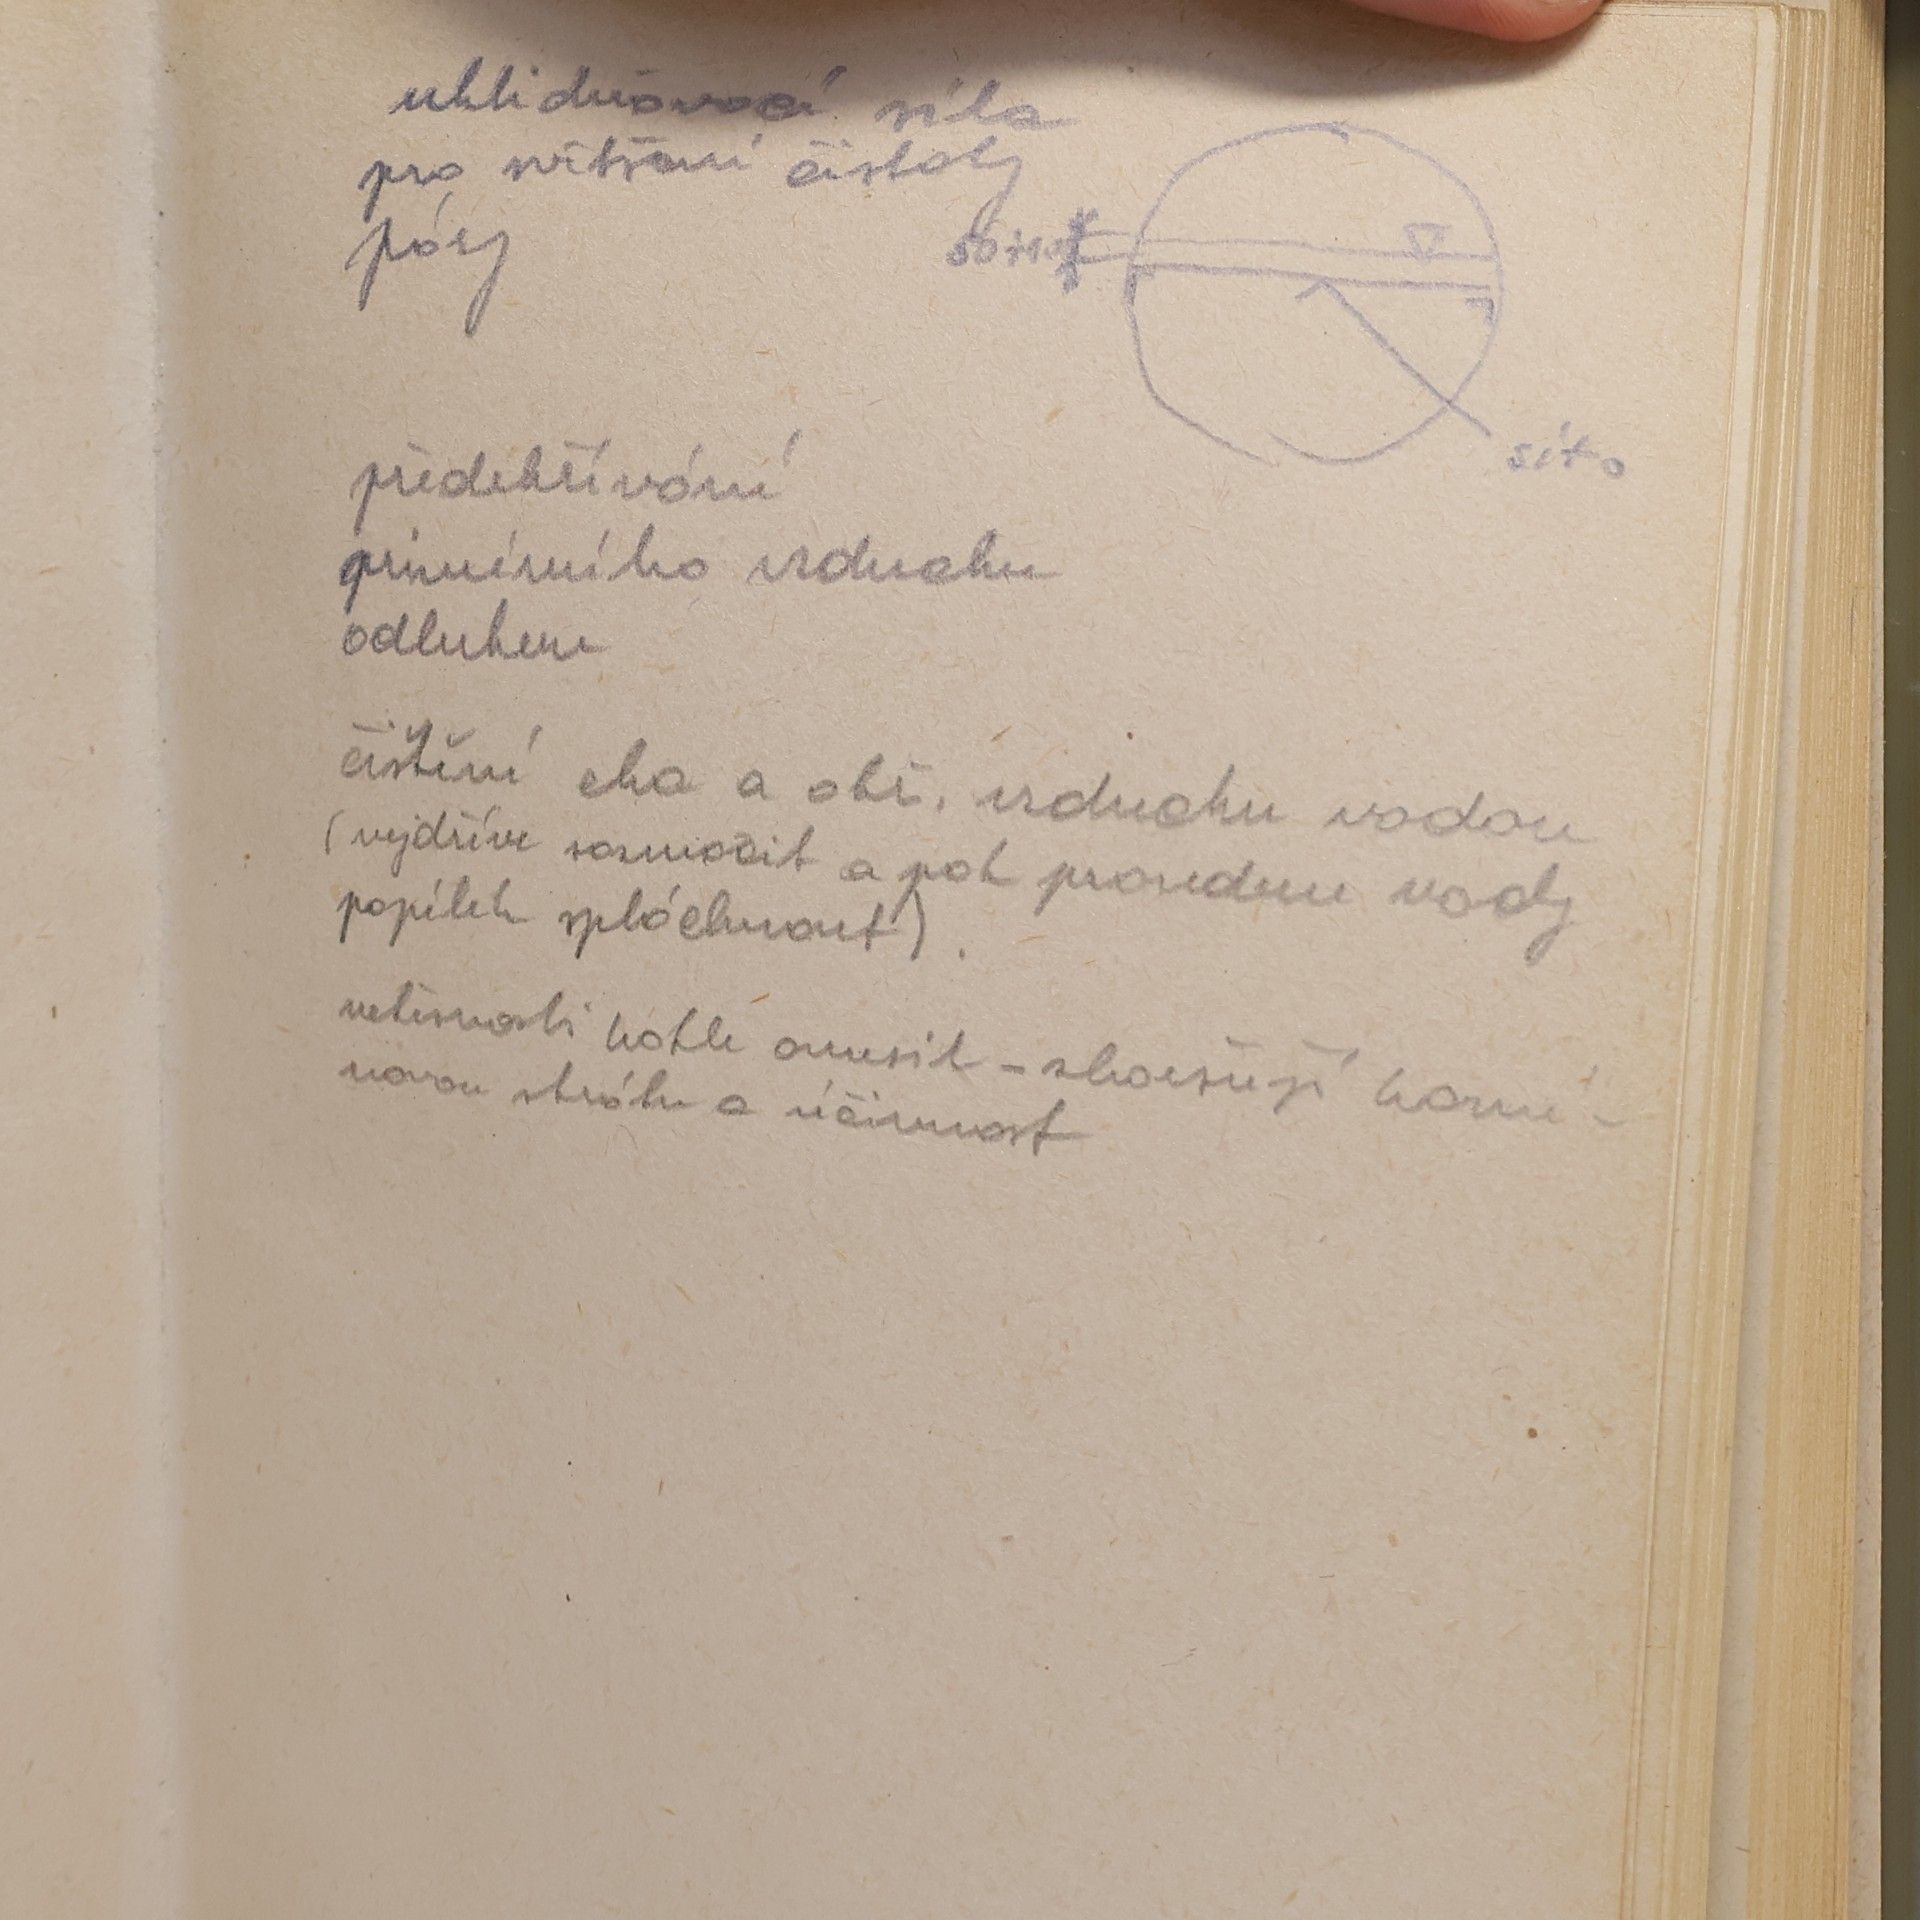 uklidňovací síta
pro zvětšení čistoty
páry
50 mm
síto
předehřívání
primárního vzduchu
odluhem
čištění eka a ohř. vzduchu vodou
(nejdříve rozmočit a pak proudem vody
popílek spláchnout).
netěsnosti kotle omezit - zhoršují komí-
novou ztrátu a účinnost